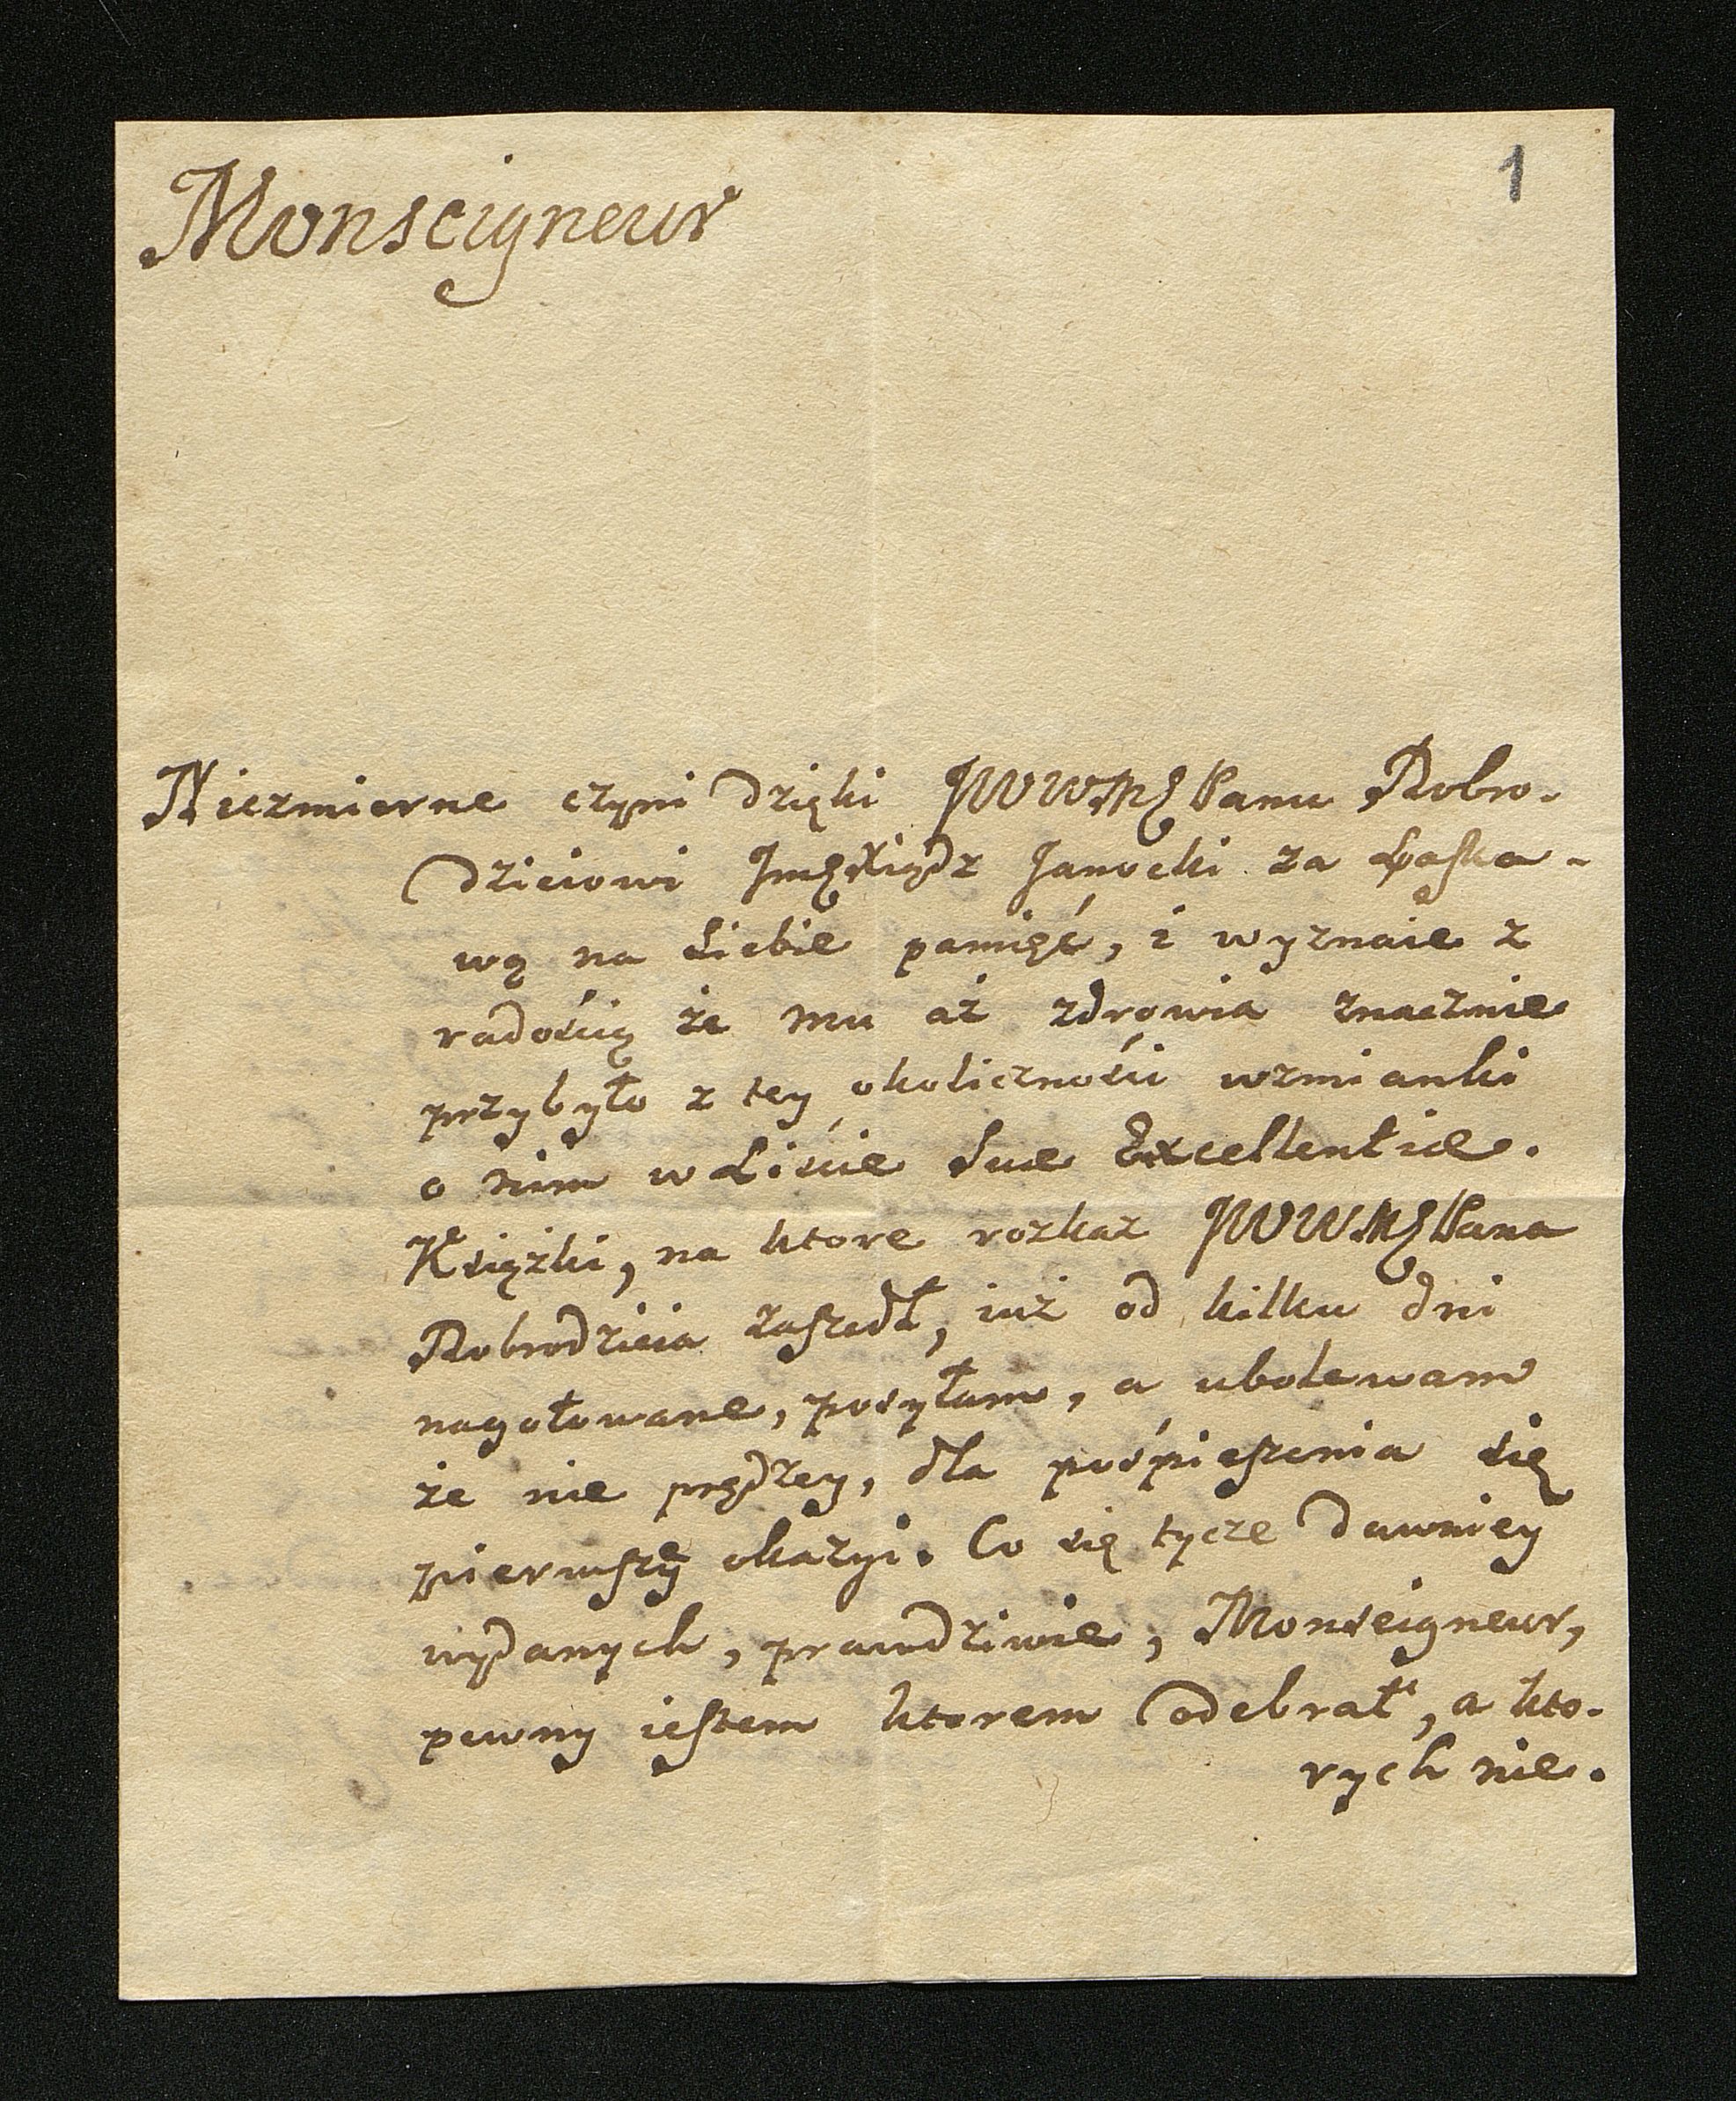 1
Monseigneur
Niezmierne czyni dzięki JWWMć Panu Dobro-
dzieiowi Jmć Xiądz Janocki za Łaska-
wą na siebie pamięć, i wyznaie z
radością że mu aż zdrowia znacznie
przybyło z tey okoliczności wzmianki
o nim w Liście Sue Excellentiae.
Książki, na ktore rozkaz JWWMć Pana
Dobrodzieia zaszedł, iuż od kilku dni
nagotowane, posyłam, a ubolewam
że nie prędzey, dla pośpieszenia się
pierwszey okazyi. Co się tycze dawniey
wydanych, prawdziwie, Monseigneur,
pewny iestem ktorem odebrał, a kto-
rych nie.